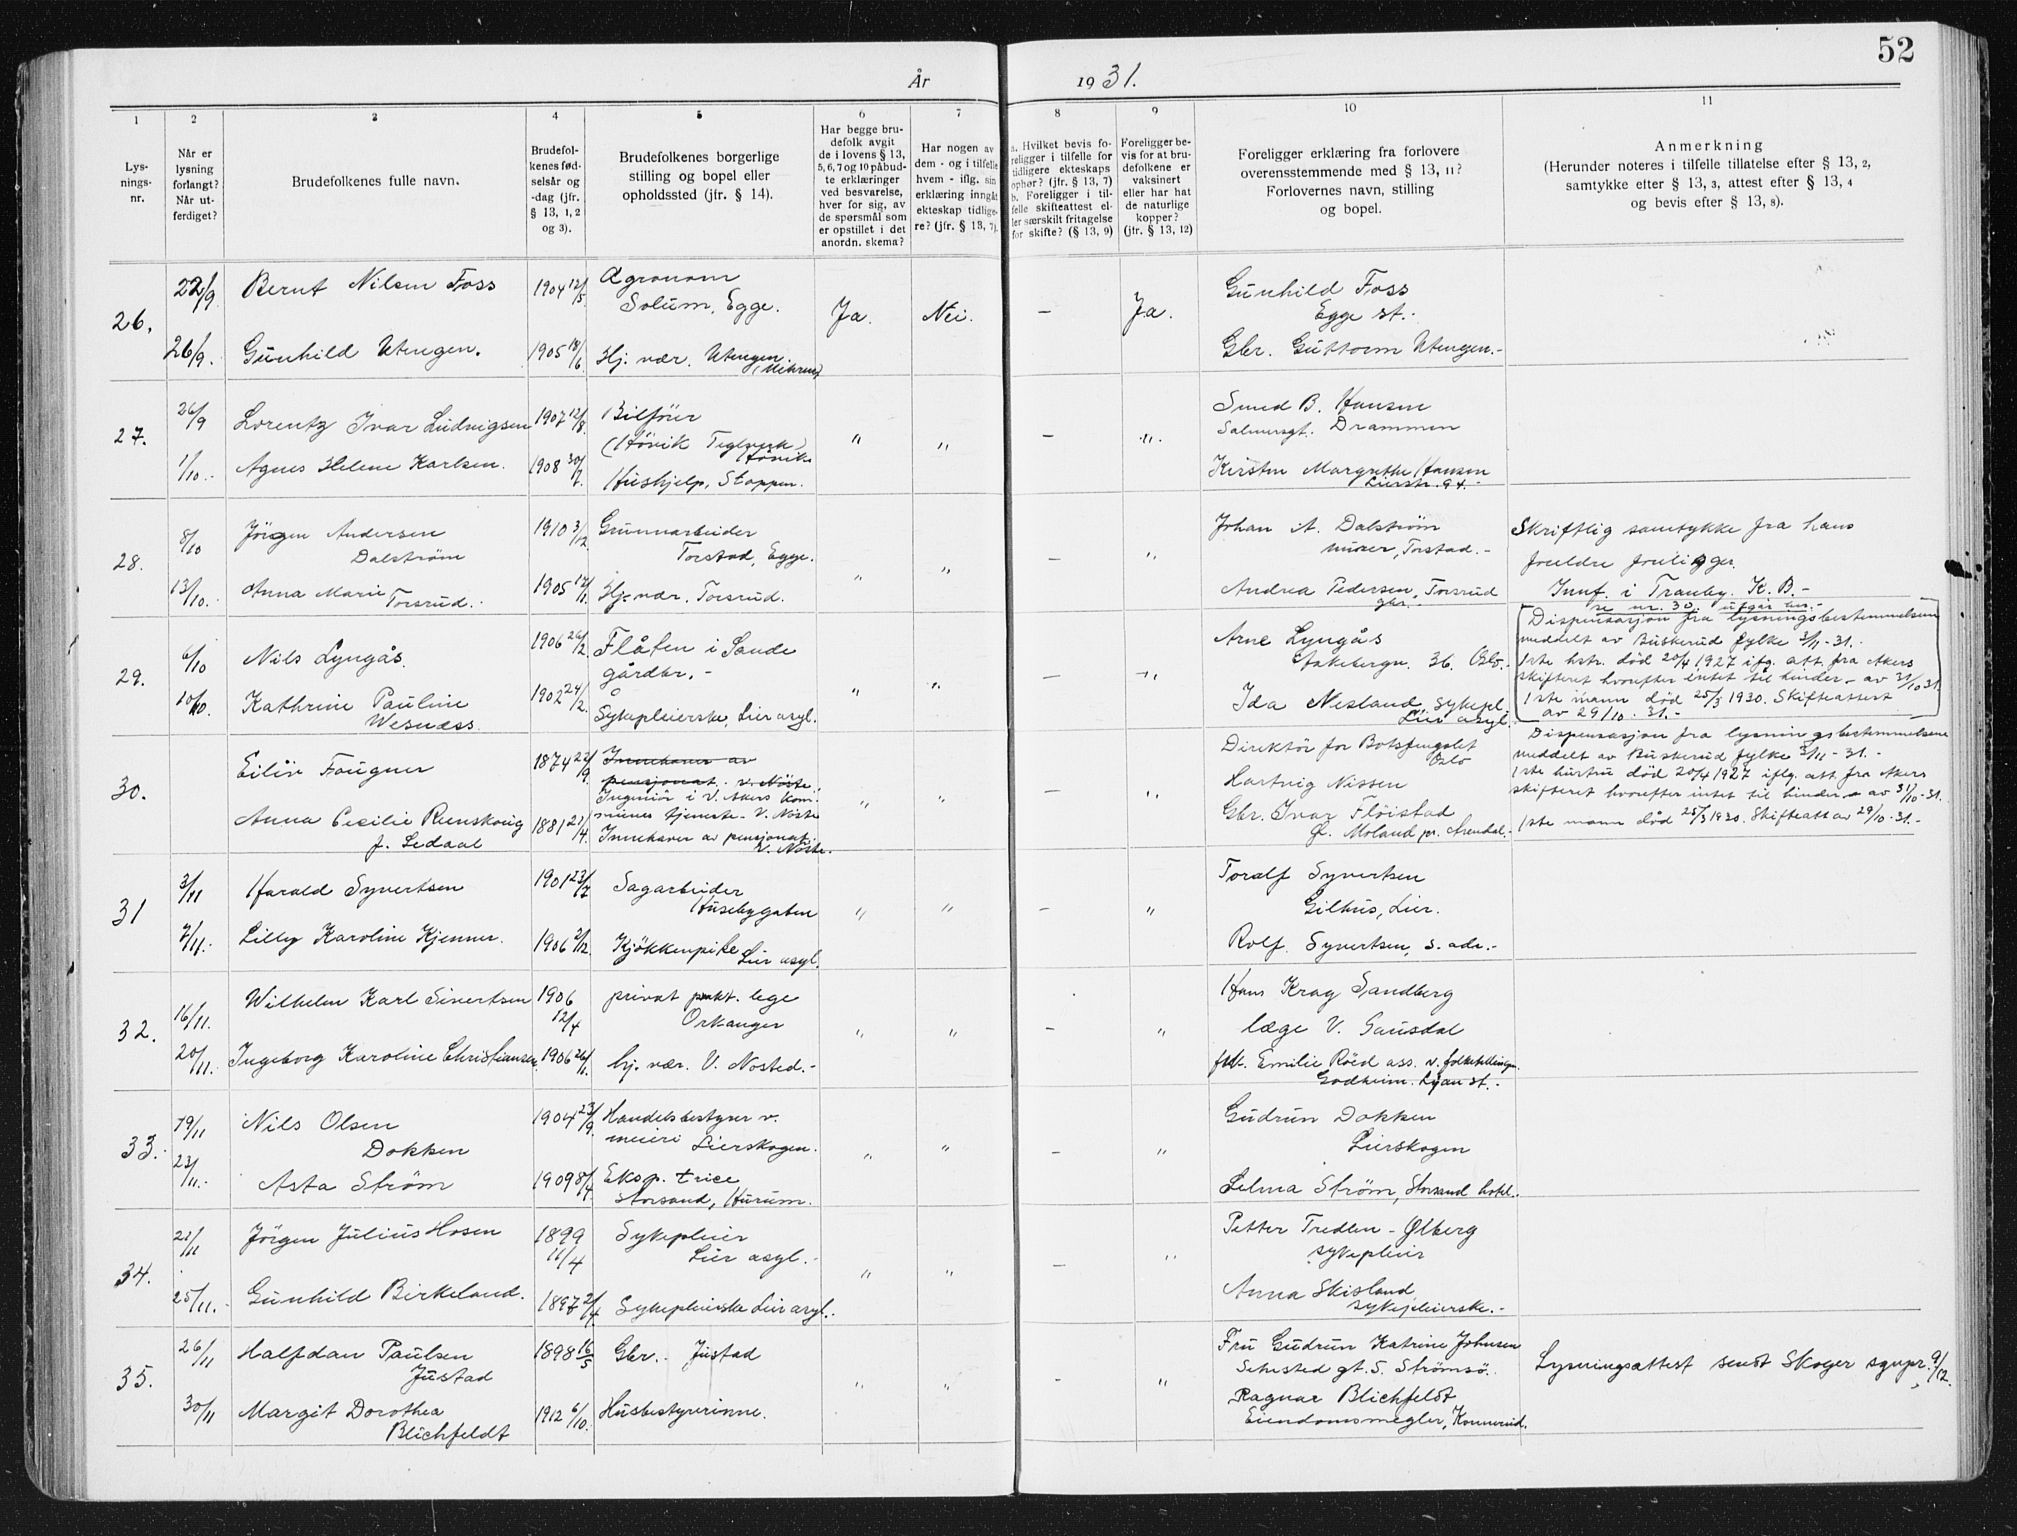 52
År 1931.
1 2 3 4 5 6 7 8 9 10 11
Lys-
nings-
nr.
Når er
lysning
forlangt?
Når ut-
ferdiget?
Brudefolkenes fulle navn.
Brudefol-
kenes fød-
selsår og
-dag (jfr.
§ 13, 1, 2
og 3).
Brudefolkenes borgerlige
stilling og bopel eller
opholdssted (jfr. § 14).
Har begge bru-
defolk avgit
de i lovens § 13,
5, 6, 7 og 10 påbud-
te erklæringer
ved besvarelse,
hver for sig, av
de spørsmål som
er opstillet i det
anordn. skema?
Har nogen av
dem - og i tilfelle
hvem - iflg. sin
erklæring inngåt
ekteskap tidlige-
re? (jfr. § 13, 7).
a. Hvilket bevis fo-
religger i tilfelle for
tidligere ekteskaps
ophør? (jfr. § 13, 7)
b. Foreligger i til-
felle skifteattest el-
ler særskilt fritagelse
for skifte? (§ 13, 9)
Foreligger be-
vis for at bru-
defolkene er
vaksinert
eller har hat
de naturlige
kopper?
(jfr. § 13, 12)
Foreligger erklæring fra forlovere
overensstemmende med § 13, 11?
Forlovernes navn, stilling
og bopel.
Anmerkning
(Herunder noteres i tilfelle tillatelse efter § 13, 2,
samtykke efter § 13, 3, attest efter § 13, 4
og bevis efter § 13, 8).
26.
22/9
Bernt Nilsen Foss
1904 12/5
Agronom
Solum, Egge.
Ja.
Nei.
—
Ja.
Gunhild Foss
Egge st.
26/9.
Gunhild Utengen.
1905 18/6
Hj. vær. Utengen.
Gbr. Guttorm Utengen.-
27.
26/9
Lorentz Ivar Ludvigsen
1907 12/8
Bilfører
(Høvik Teglverk)
Høvik
" " — "
Smed B. Hansen
Drammen
1/10.-
Agnes Helene Karlsen.
1908 30/7.
Hushjelp, Stoppen.
Kirsten Margrethe Hansen
Lierstr. 94.-
28.
8/10
Jörgen Andersen
Dalström
1910 3/12
Grunnarbeider
Torstad, Egge.
" " — "
Johan A. Dalström
murer, Torstad.-
Skriftlig samtykke fra hans
foreldre foreligger.
13/10.
Anna Marie
Torsrud.
1905 12/11.
Hj. vær. Torsrud.
Andrea Pedersen, Torsrud
gbr.
Innf. i Tranby. K. B.-
se nr. 30. utgår her.-
29.
6/10
Nils Lyngås.
1906 26/2
Flåten i Sande
gårdbr.-
" " — "
Arne Lyngås
Aakebergv. 36. Oslo.
Dispensasjon fra lysningsbestemmelsene
meddelt av Buskerud fylke 3/11-31.-
1ste hstr. død 20/4 1927 ifg. att. fra Akers
skifteret hvorefter intet til hinder- av 31/10 31.
10/10.
Kathrine Pauline
Wesnæss.
1902 24/2.
Sykepleierske, Lier asyl.
Ida Nesland, Sykepl.
Lier asyl.
1ste mann død 25/3 1930. Skifteattest
av 29/10. 31.-
30.
Eiliv Fougner
1874 22/9
Innehaver av
pensjonat. v. Nöste.
Ingeniør i V. Akers kom-
munes tjeneste. V. Nöste
" " — "
Direktør for Botsfengslet
Oslo
Hartvig Nissen
Dispensasjon fra lysningsbestemmelsene
meddelt av Buskerud fylke 3/11-31.-
1ste hustru død 20/4 1927 iflg. att. fra Akers
skifteret hvorefter intet til hinder - av 31/10-31.
Anna Cecilie Renskoug
f. Ledaal
1881 21/4.
Innehaver av pensjonat.
V. Nöste.
Gbr. Ivar Flöistad
Ø. Moland pr. Arendal.-
1ste mann död 25/3 1930. Skifteatt av 29/10.31.-
31
3/11
Harald Syvertsen
1901 23/7
Sagarbeider
Husebygaten
" " — "
Toralf Syvertsen
Gilhus, Lier.
7/11.
Lilly Karoline Kjenner.
1906 2/12.
Kjökkenpike
Lier asyl.
Rolf Syvertsen, s. adr.-
32.
16/11.
Wilhelm Karl Sivertsen
1906
12/4
privat prakt. lege
Orkanger
" " — "
Hans Krag Sandberg
læge V. Gausdal
20/11.
Ingeborg Karoline Christiansen
1906 26/11.
hj. vær. V. Nosted.-
frk. Emilie Röed ass. v. folketellingen
Godheim. Ljan st.-
33.
19/11
Nils Olsen
Dokken
1904 23/9.
Handelsbestyrer v.
meieri Lierskogen.
" " — "
Gudrun Dokken
Lierskogen
23/11.-
Asta Ström
1909 8/4
Eksp. trice
Storsand, Hurum.
Selma Ström, Storsand hotel.
34.
21/11
Jörgen Julius Hosen
1899
11/4
Sykepleier
Lier asyl.-
" " — "
Petter Tredlen - Ølberg
sykepleier
25/11.-
Gunhild Birkeland.
1897 2/4.
Sykepleierske Lier asyl.
Anna Skisland,
sykepleierske.-
35.
26/11
Halfdan Paulsen
Justad
1898 16/5
Gbr. Justad
" " — "
Fru Gudrun Katrine Johnsen
Sehested gt. 5. Strömsö.
Lysningsattest sendt Skoger sgnpr. 9/12.
30/11
Margit Dorothea
Blichfeldt
1912 6/10.
Husbestyrerinne.
Ragnar Blichfeldt
Eiendomsmegler, Konnerud.